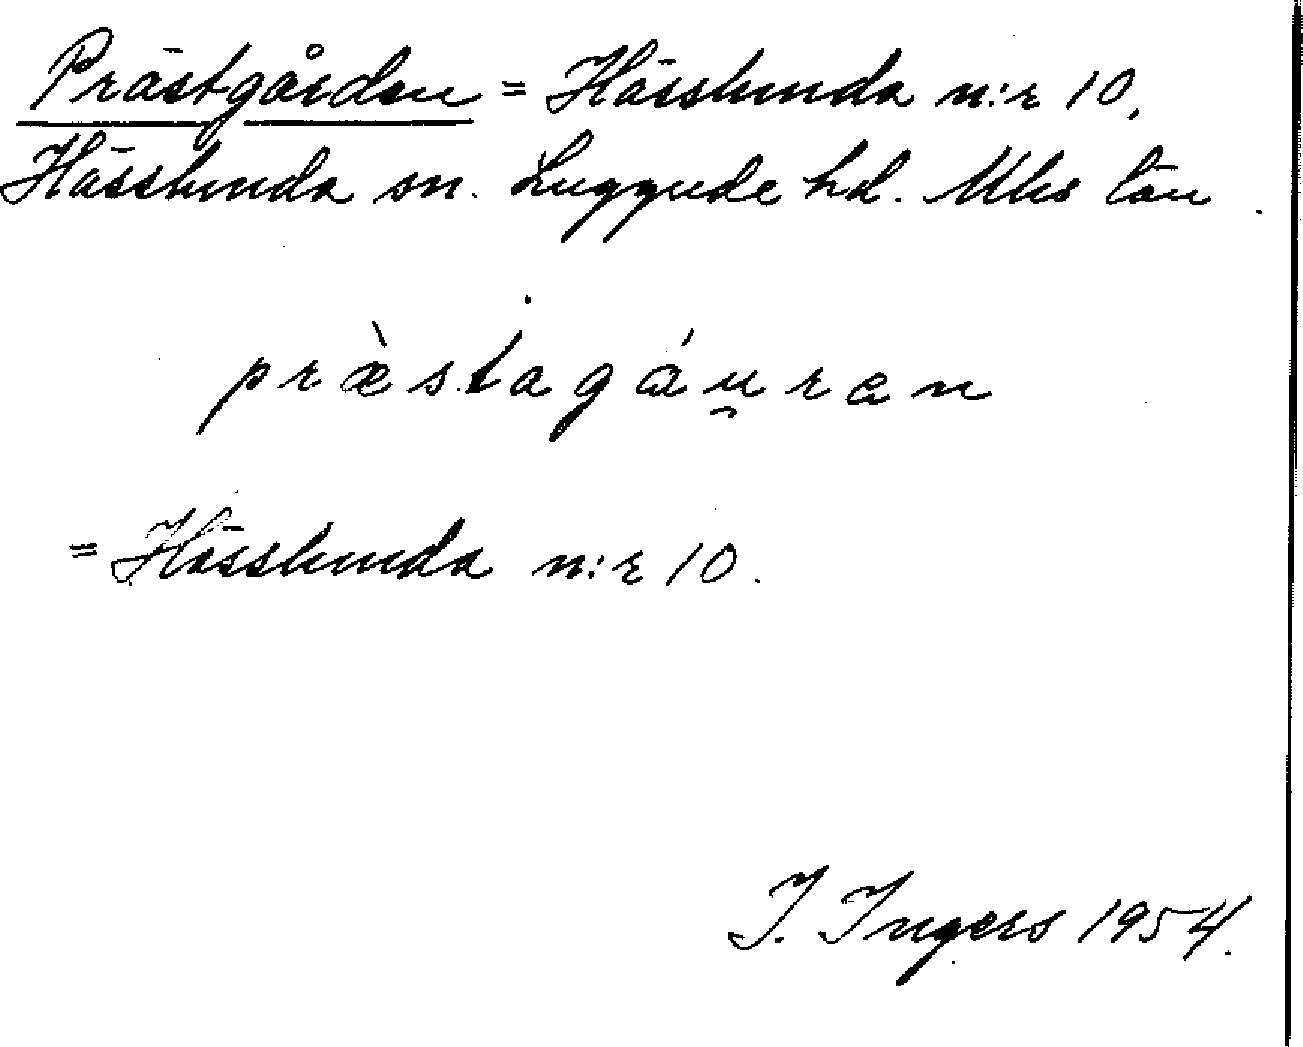 Prästgården = Hässlunda n:r 10,
Hässlunda sn. Luggude hd. Mhs län.
præ̀stagáu̯ran
= Hässlunda n:r 10.
I. Ingers 1954.